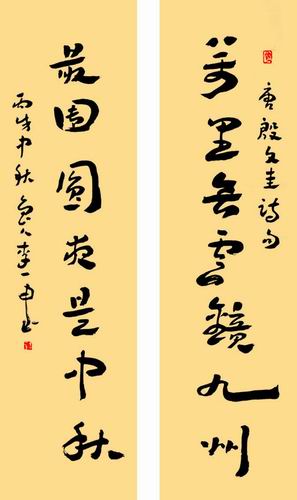 萬里無雲鏡九州
唐殷文圭詩句
最團圓夜是中秋
丙戌中秋魯人李一书